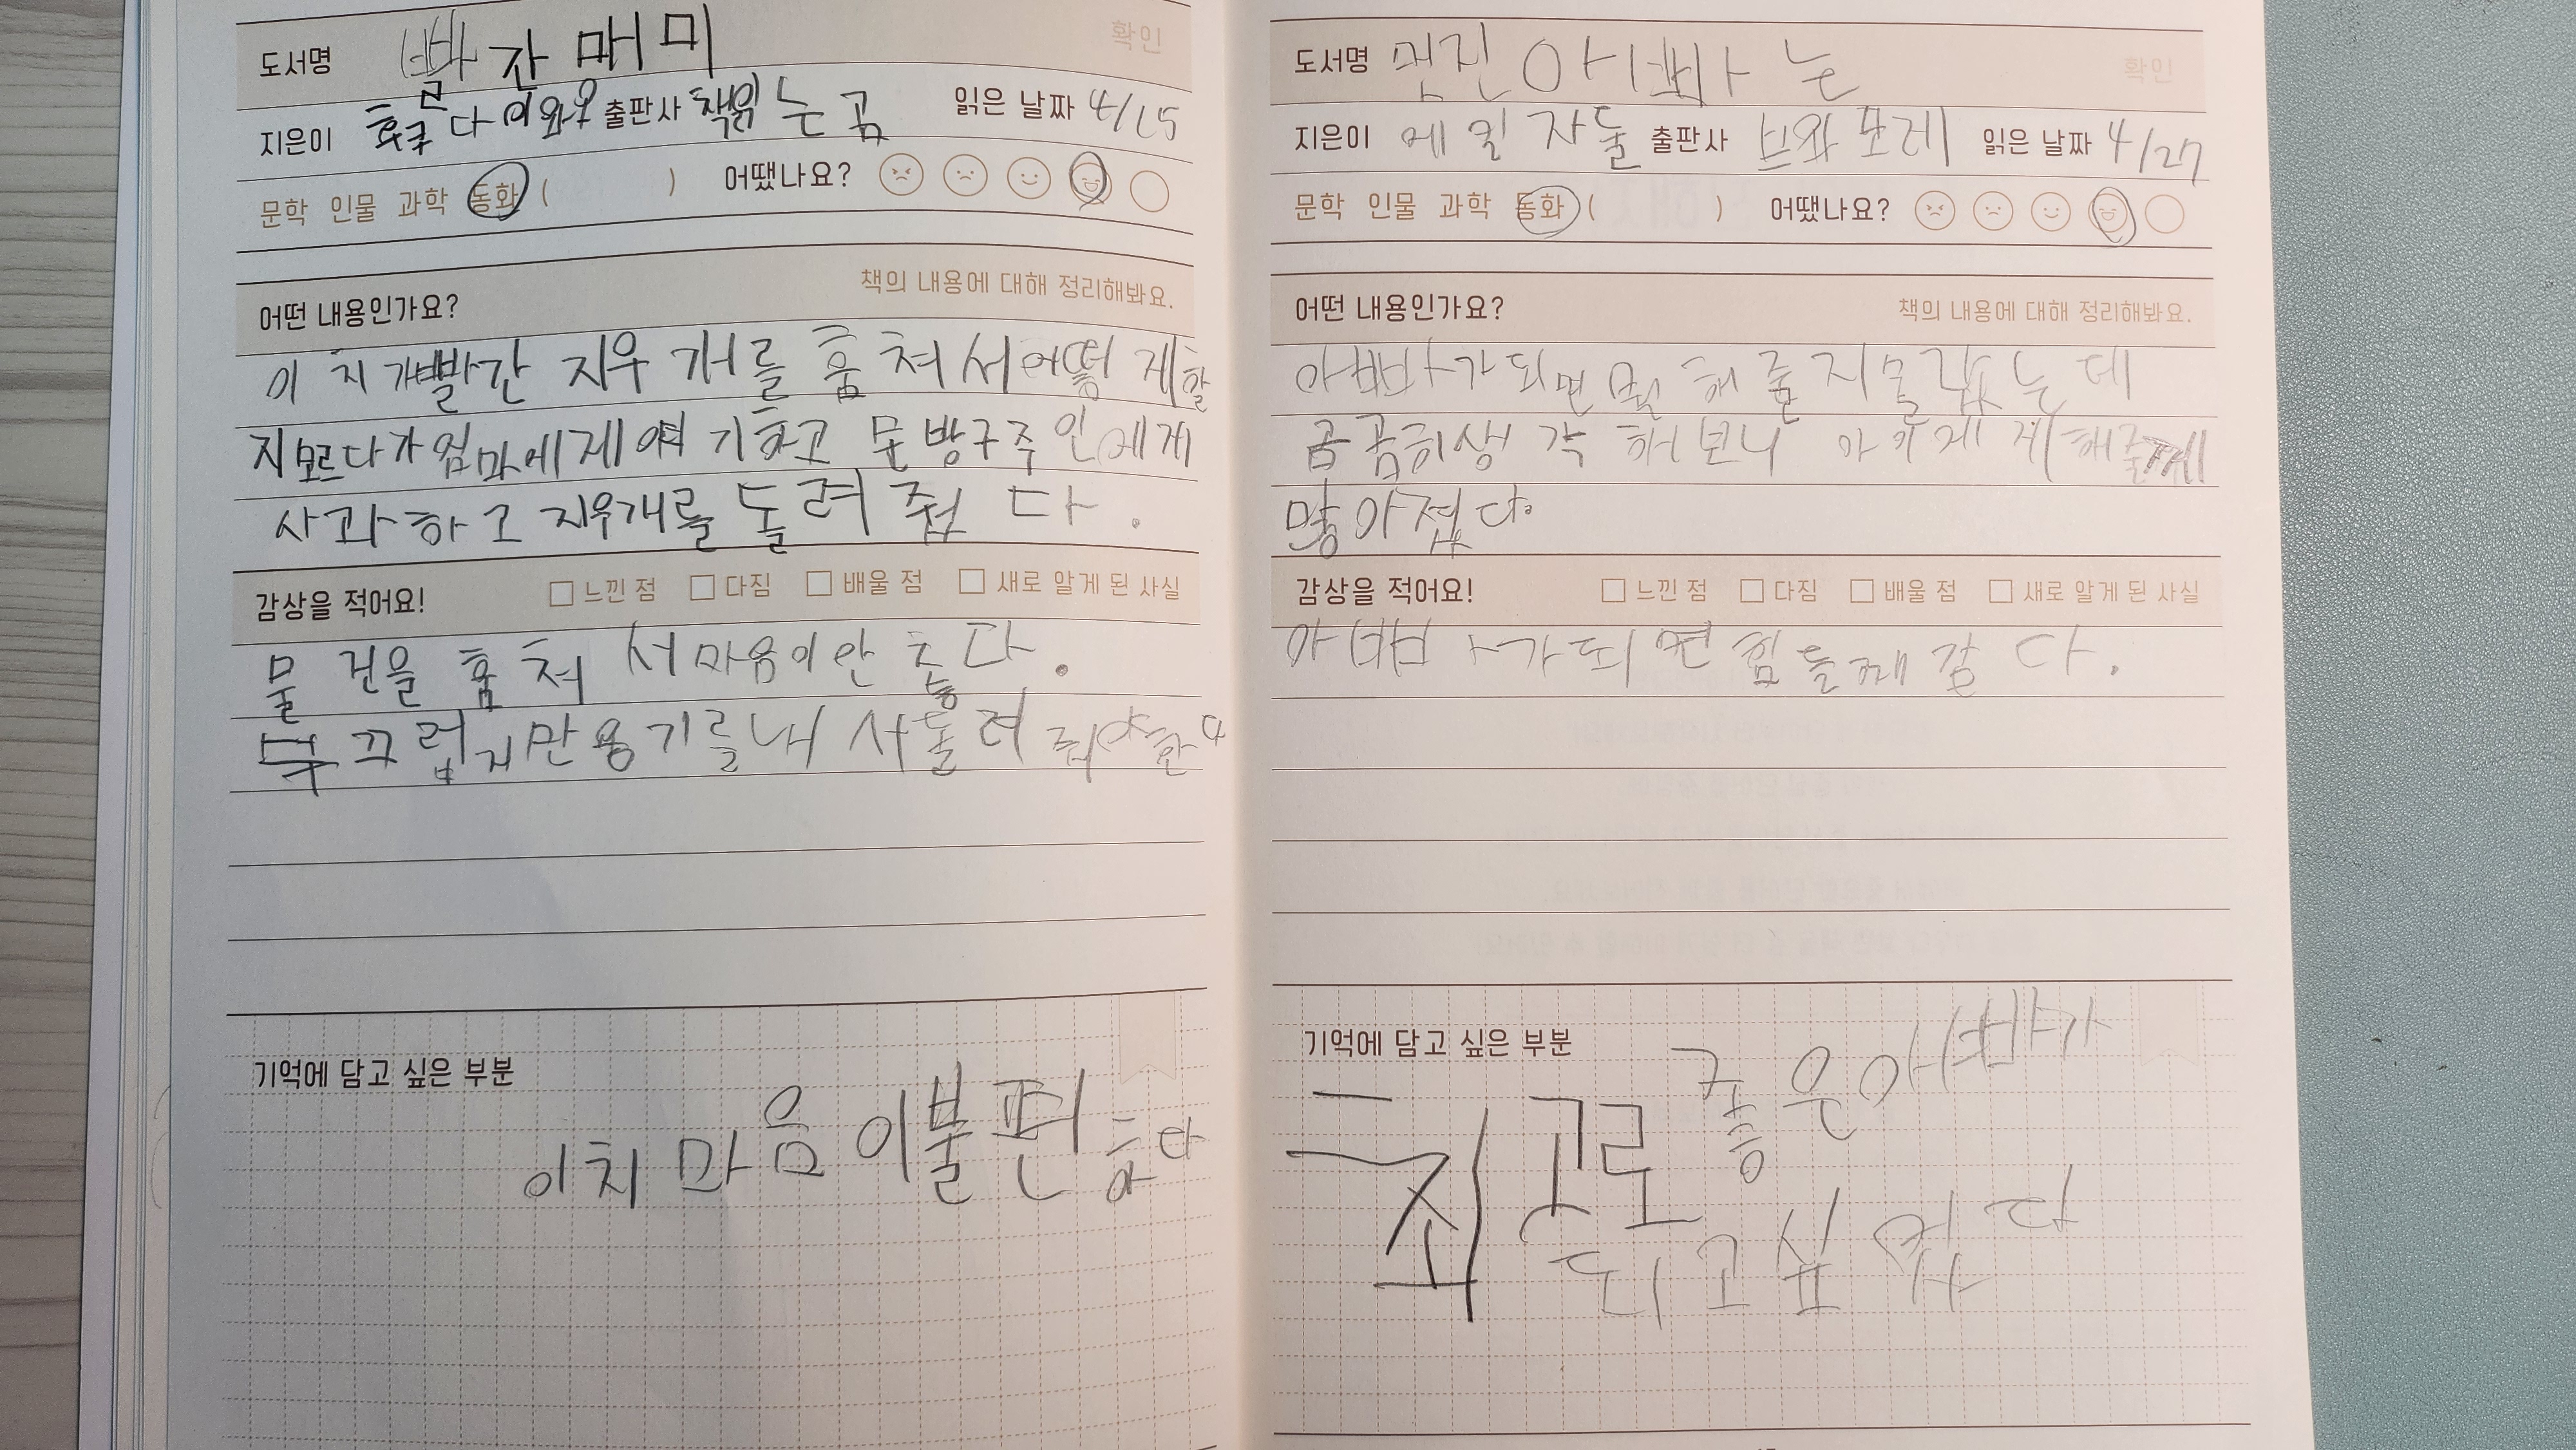 도서명 빨간매미 확인
지은이 후쿠다이와오 출판사 책읽는곰 읽은 날짜 4/15
문학 인물 과학 동화 ( ) 어땠나요?
어떤 내용인가요? 책의 내용에 대해 정리해봐요.
이치가빨간 지우개를 훔쳐서어떻게할
지모르다가엄마에게예기하고 문방구주인에게
사과하고 지우개를 돌려줬다.
감상을 적어요! □ 느낀 점 □ 다짐 □ 배울 점 □ 새로 알게 된 사실
물건을 훔쳐서마음이안좋다.
부끄럽지만용기를내서돌려줘야한다
기억에 담고 싶은 부분
이치마음이불편하다
도서명 멋진아빠는 확인
지은이 에밀자둘 출판사 브와포레 읽은 날짜 4/27
문학 인물 과학 동화 ( ) 어땠나요?
어떤 내용인가요? 책의 내용에 대해 정리해봐요.
아빠가되면뭘해줄지몰랐는데
곰곰히생각해보니 아기에게해줄께
많아졌다.
감상을 적어요! □ 느낀 점 □ 다짐 □ 배울 점 □ 새로 알게 된 사실
아빠가되면힘들께같다.
기억에 담고 싶은 부분
최고로좋은아빠가
되고싶었다